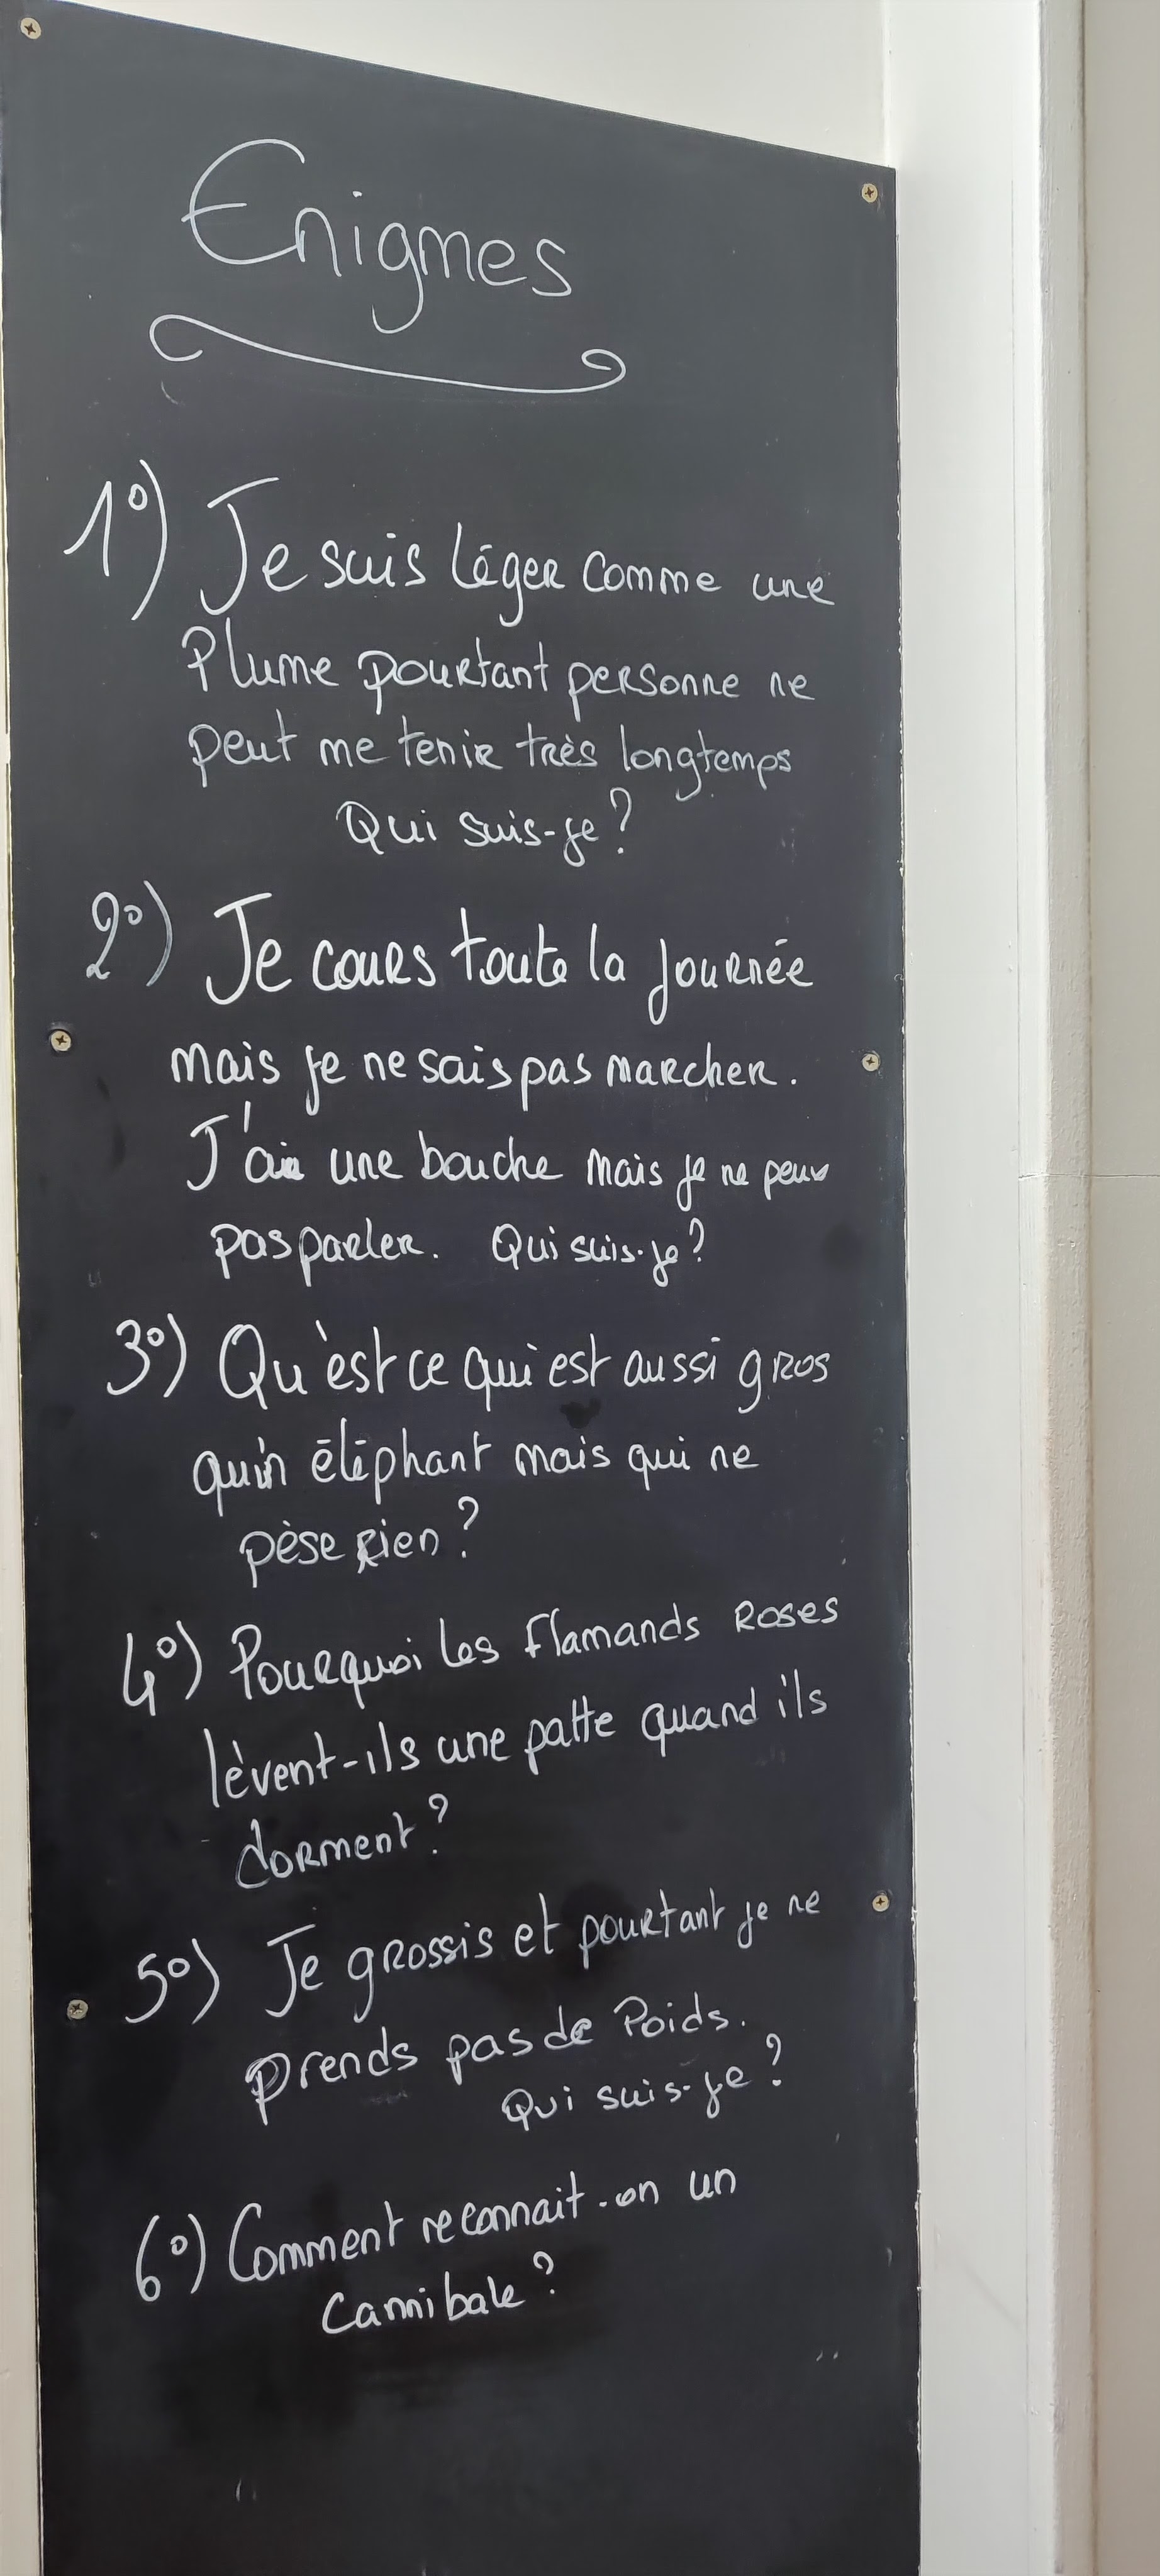 Enigmes
1°) Je suis léger comme une
Plume pourtant personne ne
peut me tenir très longtemps
Qui suis-je ?
2°) Je cours toute la journée
mais je ne sais pas marcher.
J'ai une bouche mais je ne peux
pas parler. Qui suis-je ?
3°) Qu'est ce qui est aussi gros
qu'un éléphant mais qui ne
pèse rien ?
4°) Pourquoi les Flamands Roses
lèvent-ils une patte quand ils
dorment ?
5°) Je grossis et pourtant je ne
prends pas de Poids.
Qui suis-je ?
6°) Comment reconnait-on un
Cannibale ?